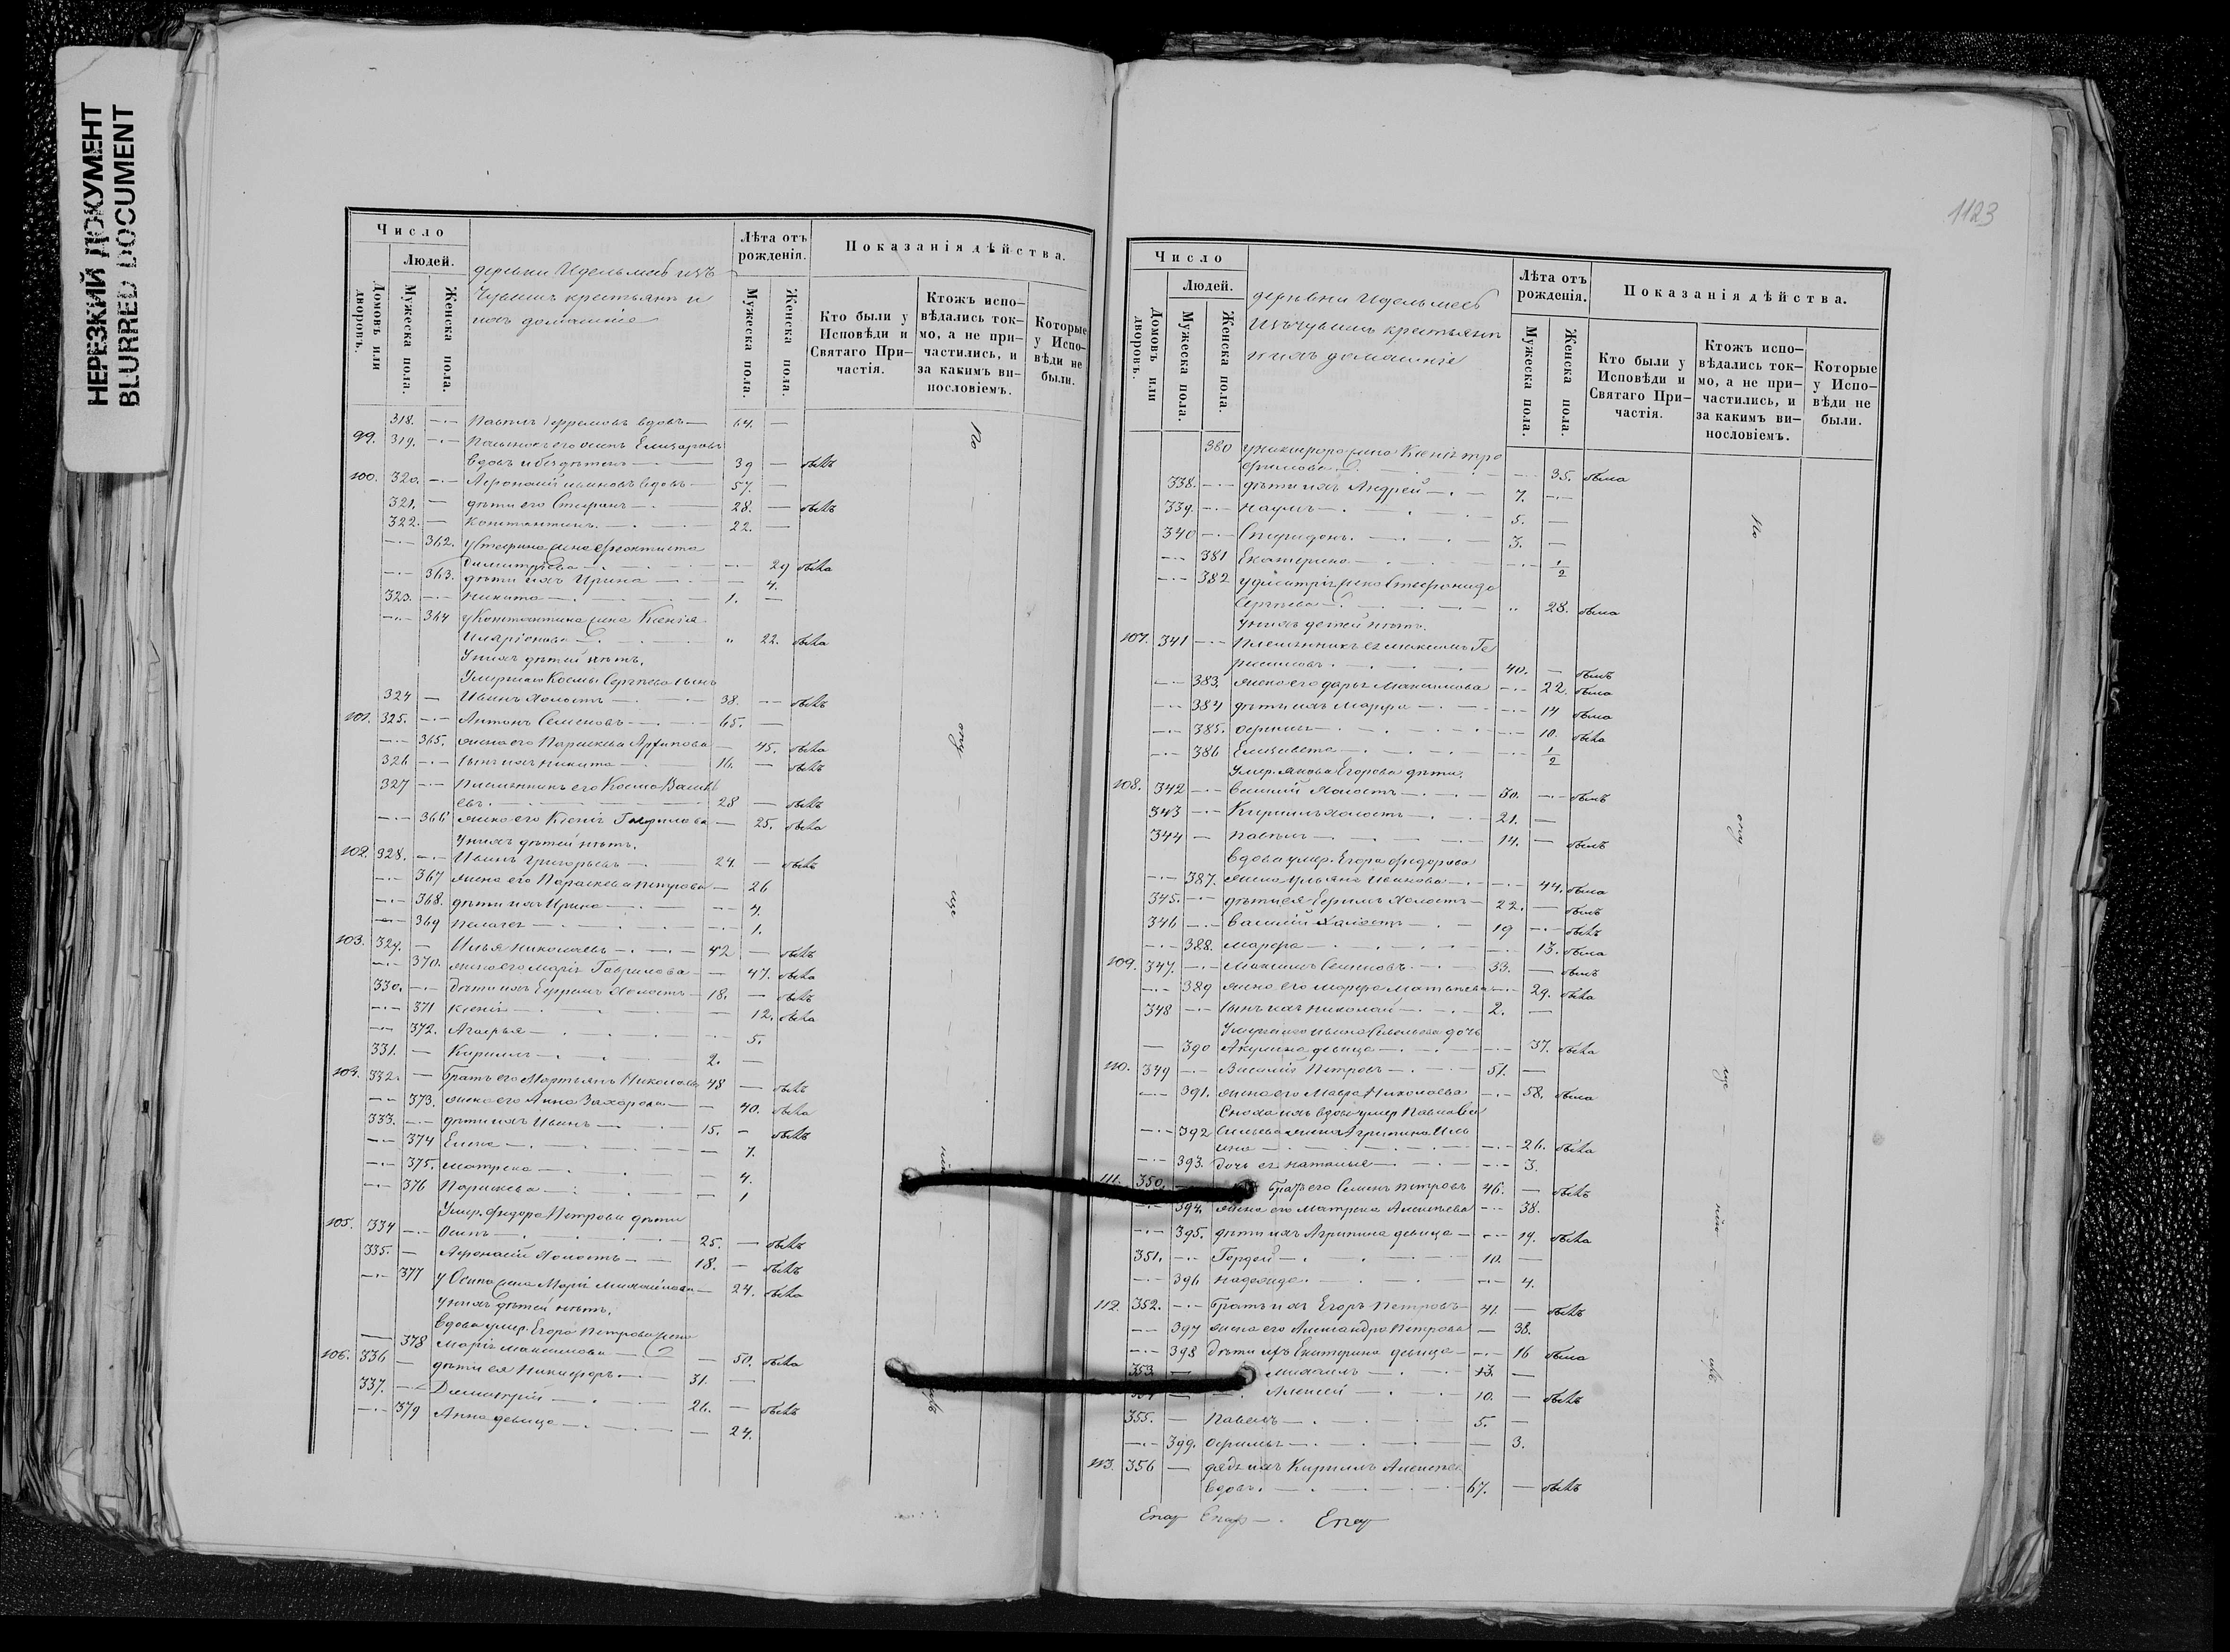 НЕРЕЗКИЙ ДОКУМЕНТ
BLURRED DOCUMENT
Число
Людей.
Домовъ или дворовъ.
Мужеска пола.
Женска пола.
деревни Идельмесь изъ
Чувашъ крестьянъ и
ихъ домашніе
Лѣта отъ рожденія.
Мужеска пола.
Женска пола.
Показанія дѣйства.
Кто были у Исповѣди и Святаго При-частія.
Ктожъ испо-вѣдались ток-мо, а не при-частились, и за какимъ ви-нословіемъ.
Которые у Испо-вѣди не были.
318. Павелъ Ефремовъ вдовъ 64.
99. 319. его Осипъ Елизаровъ
вдовъ и бездѣтенъ 39 былъ
100. 320. Аѳонасій Ивановъ вдовъ 57.
321. дѣти его Стефанъ 28. былъ
322. Константинъ 22.
362. у Стефана жена Феоктиста
Димитріева 29 была
363. дѣти ихъ Ирина 4.
323. Никита 1.
364 у Константина жена Ксенія
Иларіонова 22. была
У нихъ дѣтей нѣтъ.
Умершаго Космы Сергѣева сынъ
324 Иванъ холостъ 38. былъ
101. 325. Антонъ Семеновъ 65.
365. жена его Параскева Архипова 45. была
326 сынъ ихъ Никита 16. былъ
327 Племянникъ его Косма Василь
евъ 28 былъ
366 жена его Ксенія Гаврилова 25. была
У нихъ дѣтей нѣтъ.
102. 328. Иванъ Григорьевъ 24. былъ
367 жена его Параскева Петрова 26
368. дѣти ихъ Ирина 4.
369 Пелагея 1.
103. 329. Илья Николаевъ 42 былъ
370. жена его Марія Гаврилова 47. была
330. Дѣти ихъ Ефремъ холостъ 18. былъ
371 Ксенія 12. была
372. Агафья 5.
331. Кириллъ 2.
104. 332. Братъ его Мартьянъ Николаевъ 48 былъ
373. жена его Анна Захарова 40. была
333. дѣти ихъ Иванъ 15. былъ
374 Елена 7.
375. Матрена 4.
376 Параскева 1
Умер. Федора Петрова дѣти
105. 334 Осипъ 25. былъ
335. Аѳонасій холостъ 18. былъ
377 у Осипа жена Марія Михайлова 24. была
У нихъ дѣтей нѣтъ.
Вдова умер. Егора Петрова жена
378 Марія Максимова 50. была
106. 336 дѣти ея Никифоръ 31.
337. Димитрій 26. былъ
379 Анна девица 24.
1123
Число
Людей.
Домовъ или дворовъ.
Мужеска пола.
Женска пола.
деревни Идельмесь
Изъ чувашъ крестьянъ
и ихъ домашніе
Лѣта отъ рожденія.
Мужеска пола.
Женска пола.
Показанія дѣйства.
Кто были у Исповѣди и Святаго При-частія.
Ктожъ испо-вѣдались ток-мо, а не при-частились, и за какимъ ви-нословіемъ.
Которые у Испо-вѣди не были.
380 у Никифора жена Ксенія Тро
фимова 35. была
338. дѣти ихъ Андрей 7.
339. Наумъ 5.
340 Спиридонъ 3.
381 Екатерина 1/2
382 у Дмитрія жена Стефанида
Сергѣева 28. была
У нихъ детей нѣтъ.
107. 341 Племянникъ ея Максимъ Ге
расимовъ 40. былъ
383. жена его Дарья Максимова 22. была
384 дѣти ихъ Марфа 14 была
385. Офимья 10. была
386 Елизавета 1/2
Умер. Якова Егорова дѣти.
108. 342 Василій холостъ 30. былъ
343 Кириллъ холостъ 21.
344 Павелъ 14. былъ
Вдова умер. Егора Федорова
387. жена Ульяна Иванова 44. была
345. дѣти ея Ефимъ холостъ 22. былъ
346 Василій холостъ 19 былъ
388. Марфа 13. была
109. 347. Максимъ Семеновъ 33. былъ
389 жена его Марфа Матвѣева 29. была
348 Сынъ ихъ Николай 2.
Умершаго Ивана Савельева дочь
390 Акулина девица 37. была
110. 349 Василій Петровъ 51.
391. жена его Мавра Николаева 58. была
Сноха ихъ вдова умер Павла
392 жена Агрипина Иль
ина 26. была
393. дочь ея Наталья 3.
111. 350. Братъ его Семенъ Петровъ 46. былъ
394. жена его Матрена Алексѣева 38.
395. дѣти ихъ Агрипина девица 19. была
351. Гордей 10.
396 Надежда 4.
112. 352. Братъ ихъ Егоръ Петровъ 41. былъ
397 жена его Александра Петрова 38.
398 Дѣти ихъ Екатерина девица 16 была
353. Михаилъ 13.
354 Алексей 10. былъ
355. Павелъ 5.
399. Офимья 3.
113. 356 дядя ихъ Кириллъ Алексѣевъ
вдовъ 67. былъ